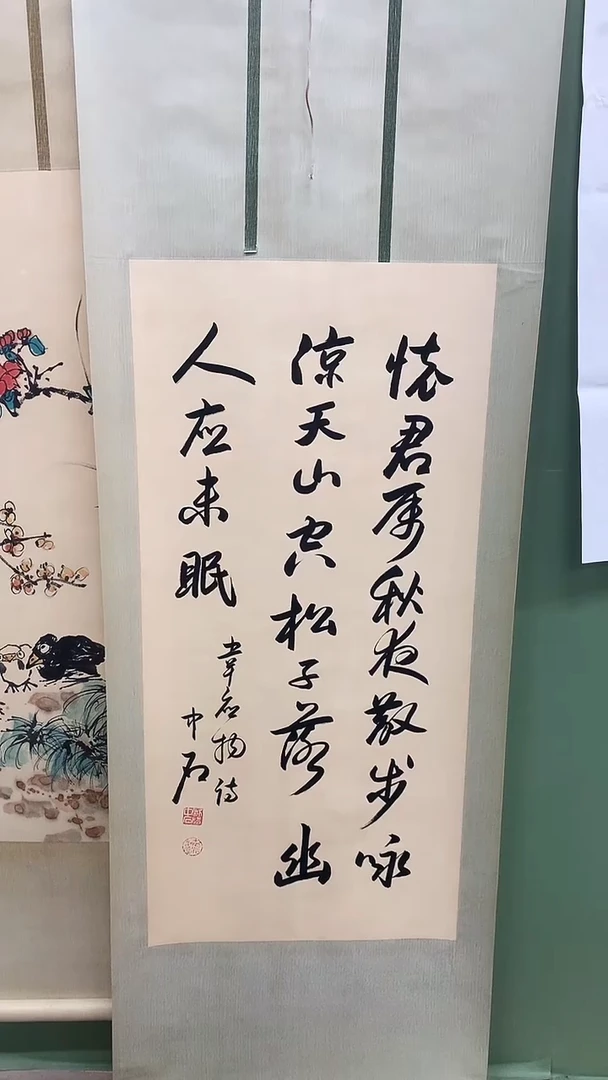 怀君属秋夜散步咏
凉天山空松子落幽
人应未眠
韦应物诗
中石